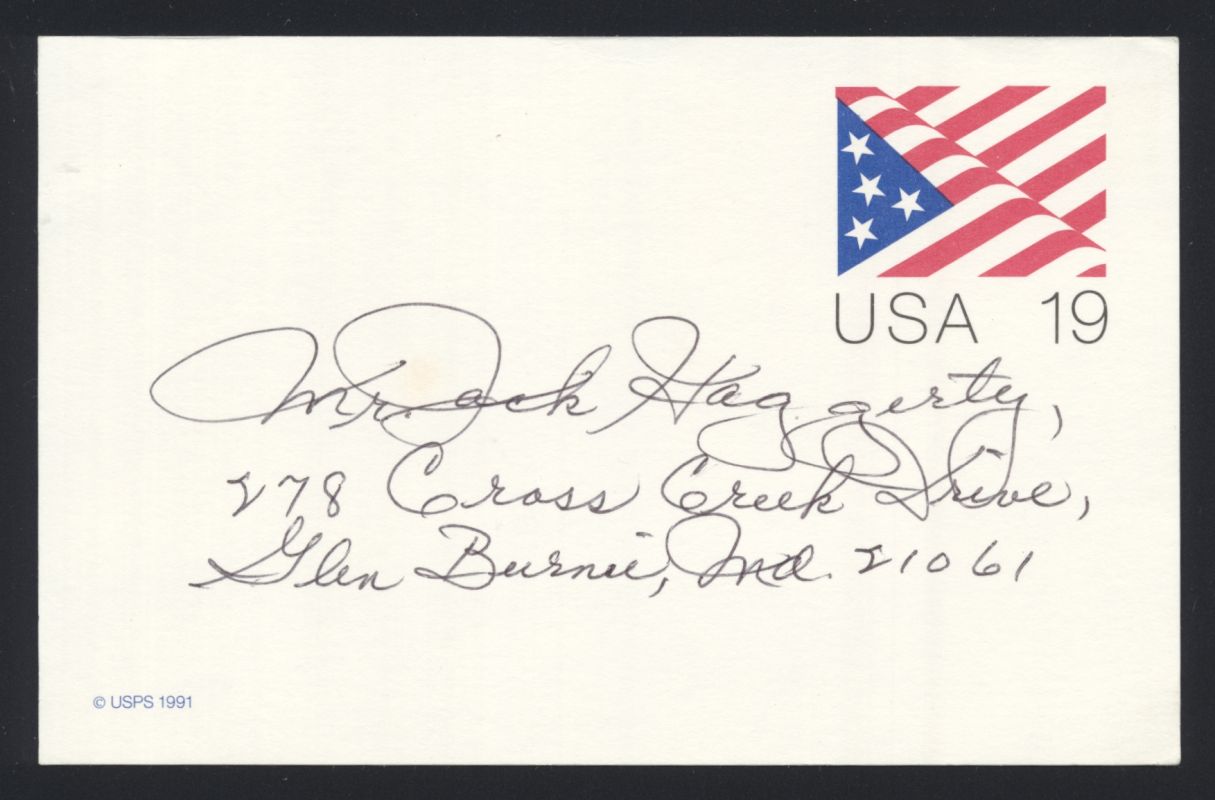 USA 19
Mr. Jack Haggerty,
278 Cross Creek Drive,
Glen Burnie, Md. 21061
© USPS 1991